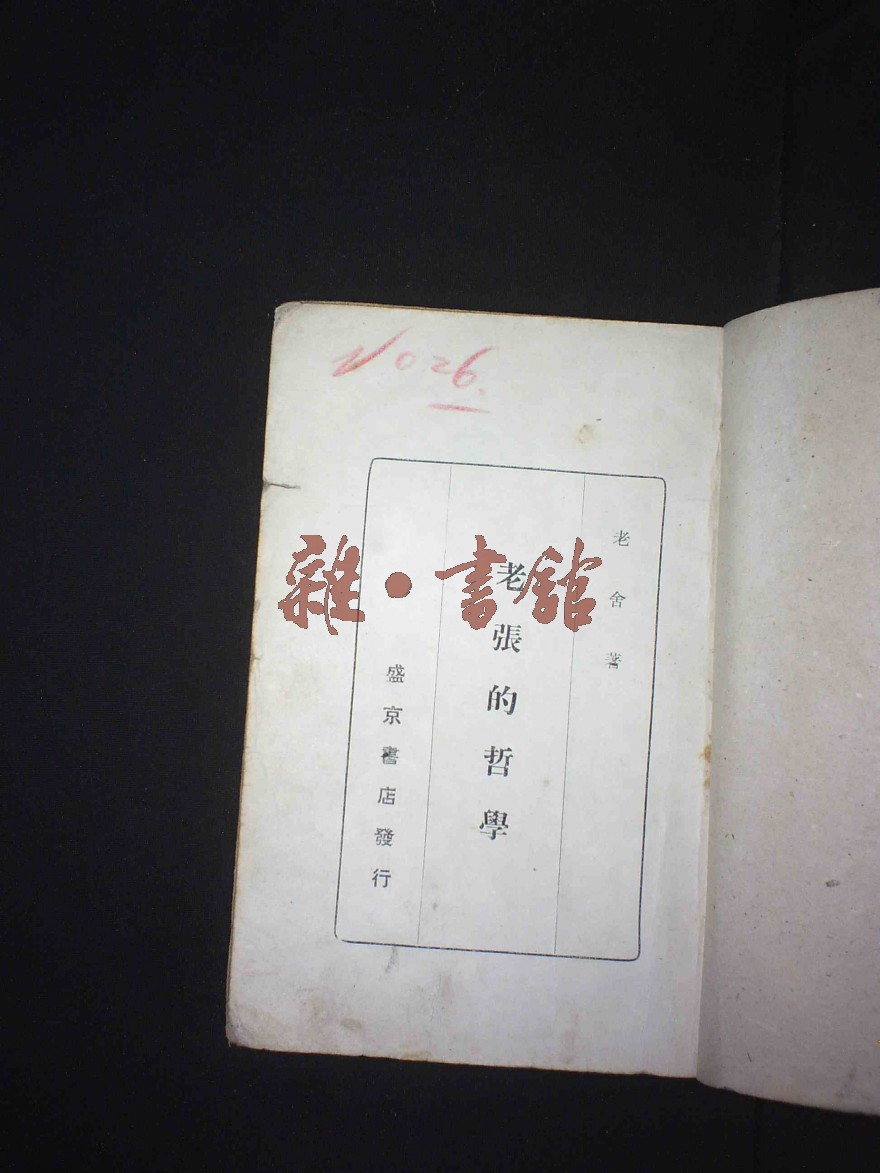 No 26.
老舍著
老張的哲學
盛京書店發行
雜·書館